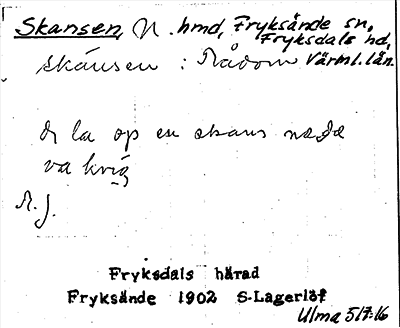 Skansen, N. hmd, Fryksände sn,
Fryksdals hd,
skánsen : Rådom Värml. län.
di la op en skans nä de
va krig
R. J.
Fryksdals härad
Fryksände 1902 S-Lagerlöf
Ulma 517:16